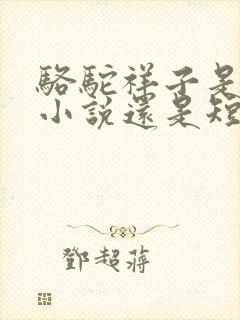 駱駝祥子是
小說還是短
鄧超蔣